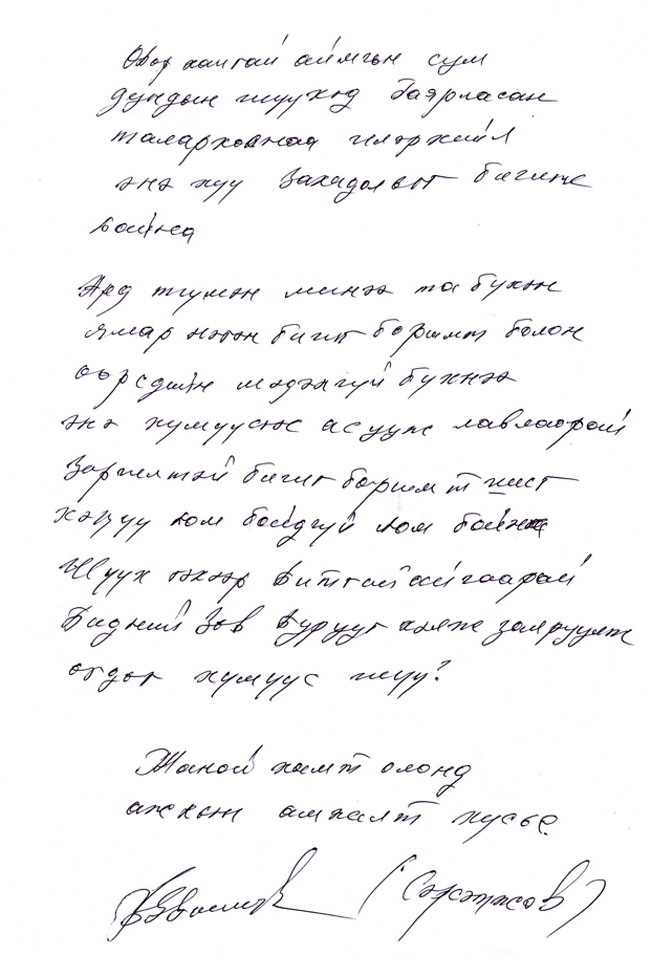 Өвөрхангай аймгын сум
дундын шүүхэд баярласан
талархснаа илэрхийл
энэ хүү захидолыг бичиж
байна
Ард түмэн минээ та бүхэн
ямар нэгэн бичиг баримт болон
өөрсдийн мэдэхгүй бүхнээ
энэ хүмүүсээс асууж лавлаарай
Зарчимтай бичиг баримт шиг
хэцүү юм байдгүй юм байна
Шүүх гэхээр битгий айгаарай
Бидний зөв бурууг хянаж залруулж
өгдөг хүмүүс шүү?
Танай хамт олонд
ажлын амжилт хүсье.
(Сэрэтжав)